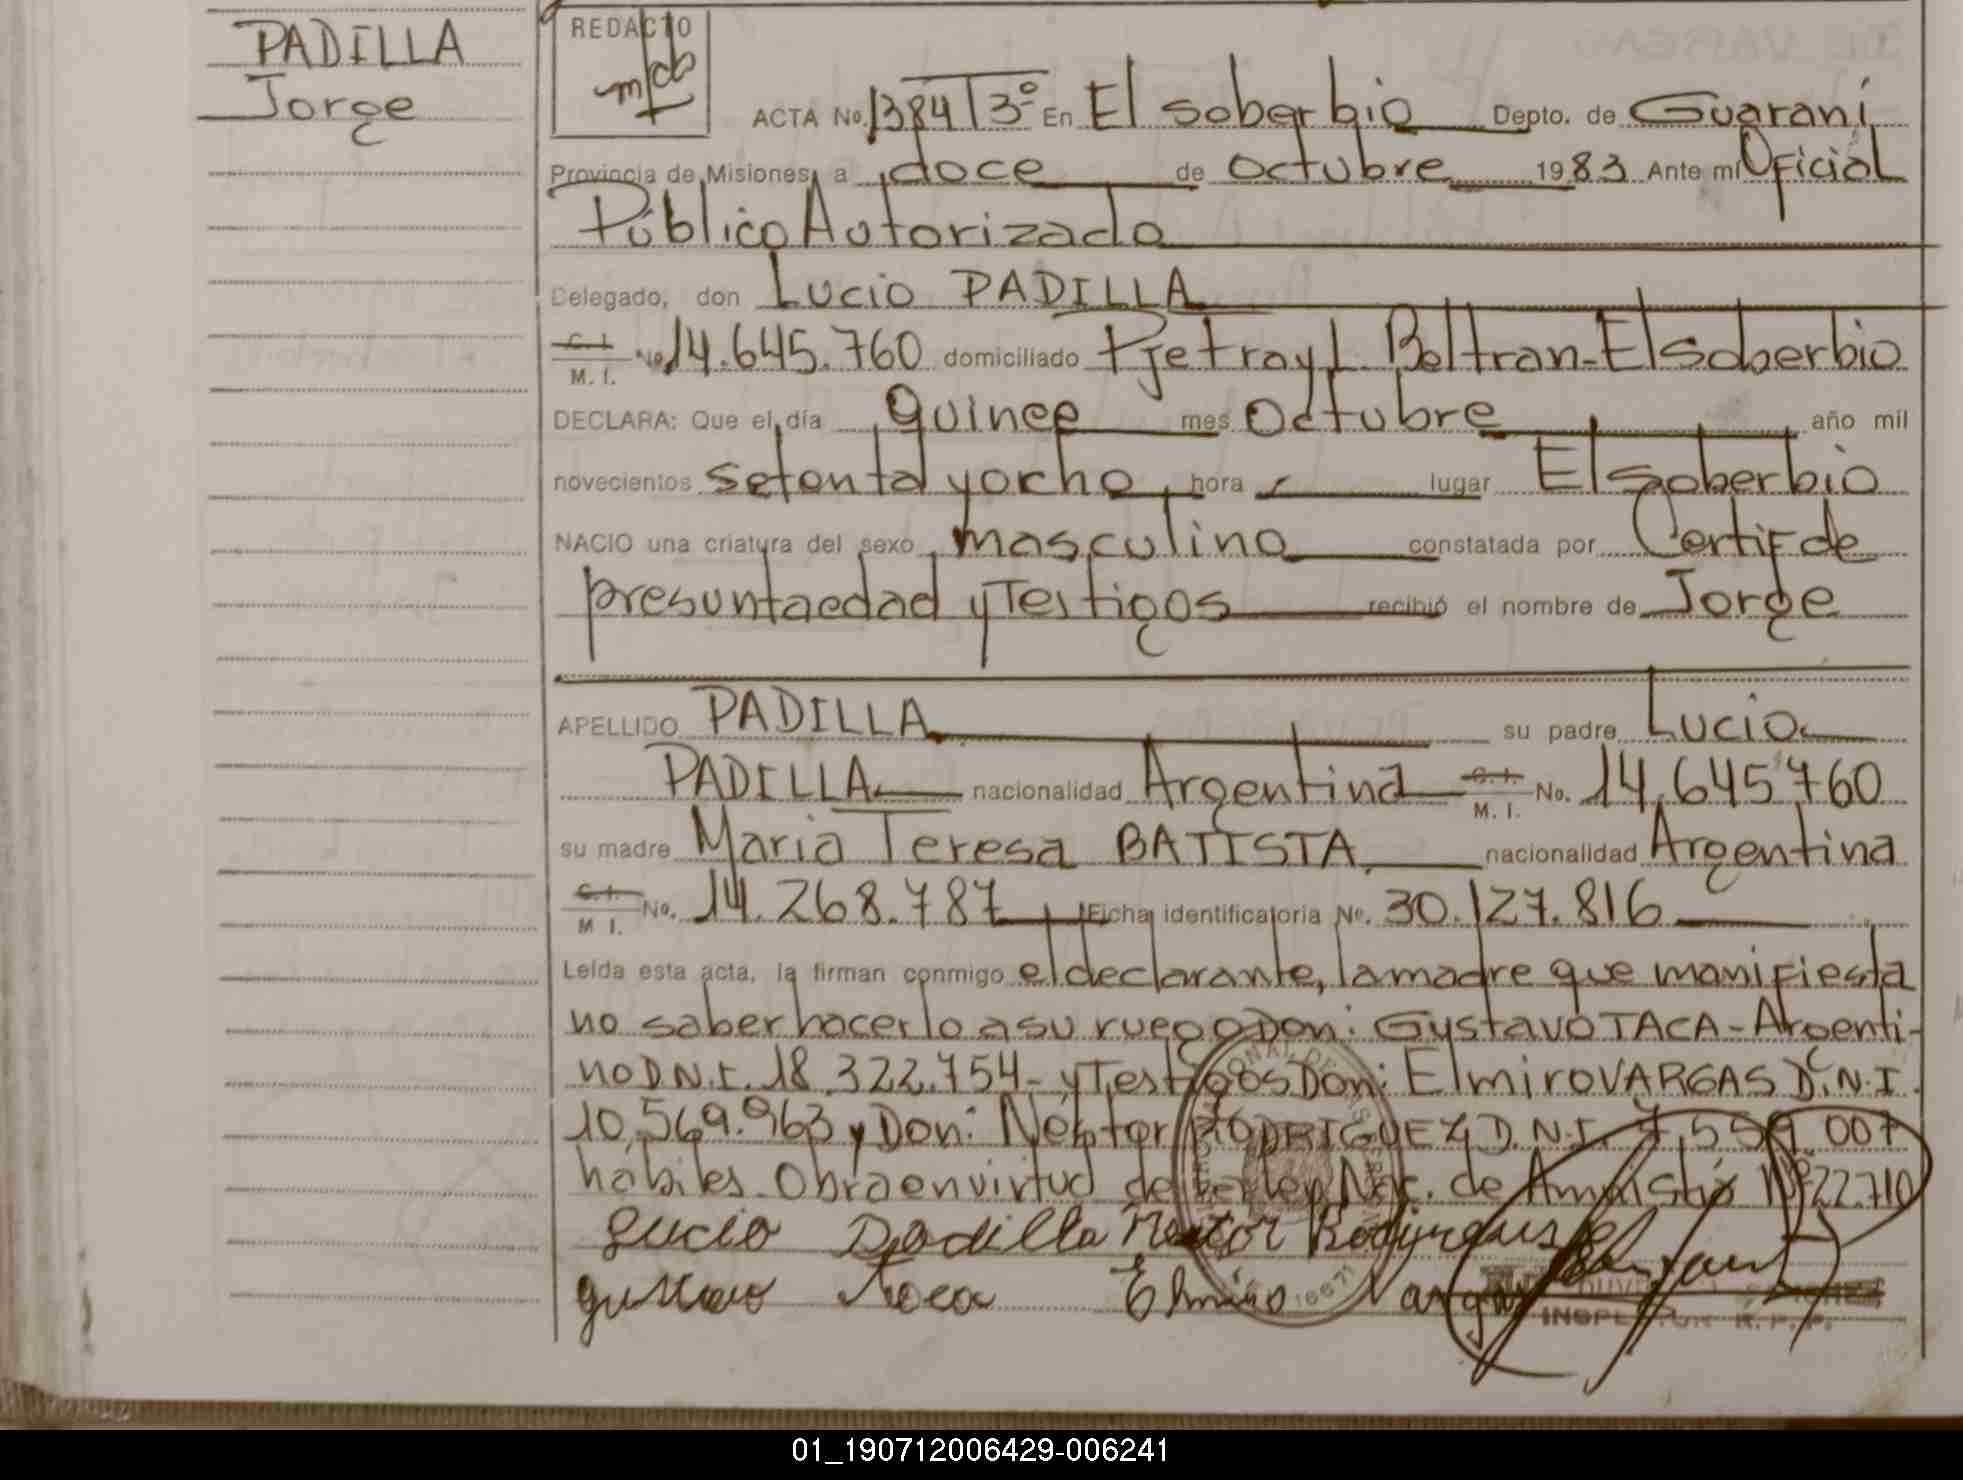 PADILLA
Jorge
REDACTO
ACTA No. 1384 T 3º En El soberbio Depto. de Guaraní
Provincia de Misiones, a doce de octubre 1983 Ante mí Oficial
Público Autorizado
Delegado, don Lucio PADILLA
C. I. M. I. No. 14.645.760 domiciliado Pje tray L. Beltran-El soberbio
DECLARA: Que el día quince mes Octubre año mil
novecientos setenta y ocho, hora lugar El soberbio
NACIO una criatura del sexo masculino constatada por Certif de
presunta edad y Testigos recibió el nombre de Jorge
APELLIDO PADILLA su padre Lucio
PADILLA nacionalidad Argentina C. I. M. I. No. 14.645760
su madre Maria Teresa BATISTA nacionalidad Argentina
C. I. M I. No. 14.268.787 Ficha identificatoria No. 30.127.816
Leída esta acta, la firman conmigo el declarante, la madre que manifiesta
no saber hacerlo a su ruego Don: Gustavo TACA-Argenti-
no D.N.I. 18.322.754- y Testigos Don: Elmiro VARGAS D.N.I.
10.569.963 y Don: Néstor RODRIGUEZ D.N.I. 7.559.007
hábiles. Obra en virtud de la ley Nac. de Amnistía Nº 22.710
Lucio Padilla Nestor Rodrigues
gustavo Taca Elmiro Vargas
INSPECTOR R. P. P.
01_190712006429-006241